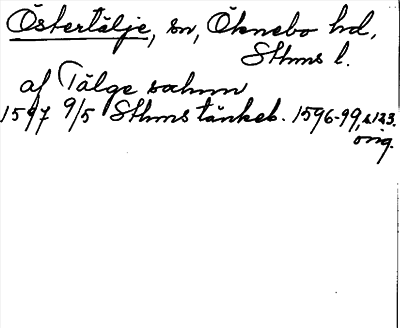 Östertälje, sn, Öknebo hd,
Sthms l.
af Tälge sochnn
1597 9/5 Sthms tänkeb. 1596-99, s. 123.
orig.